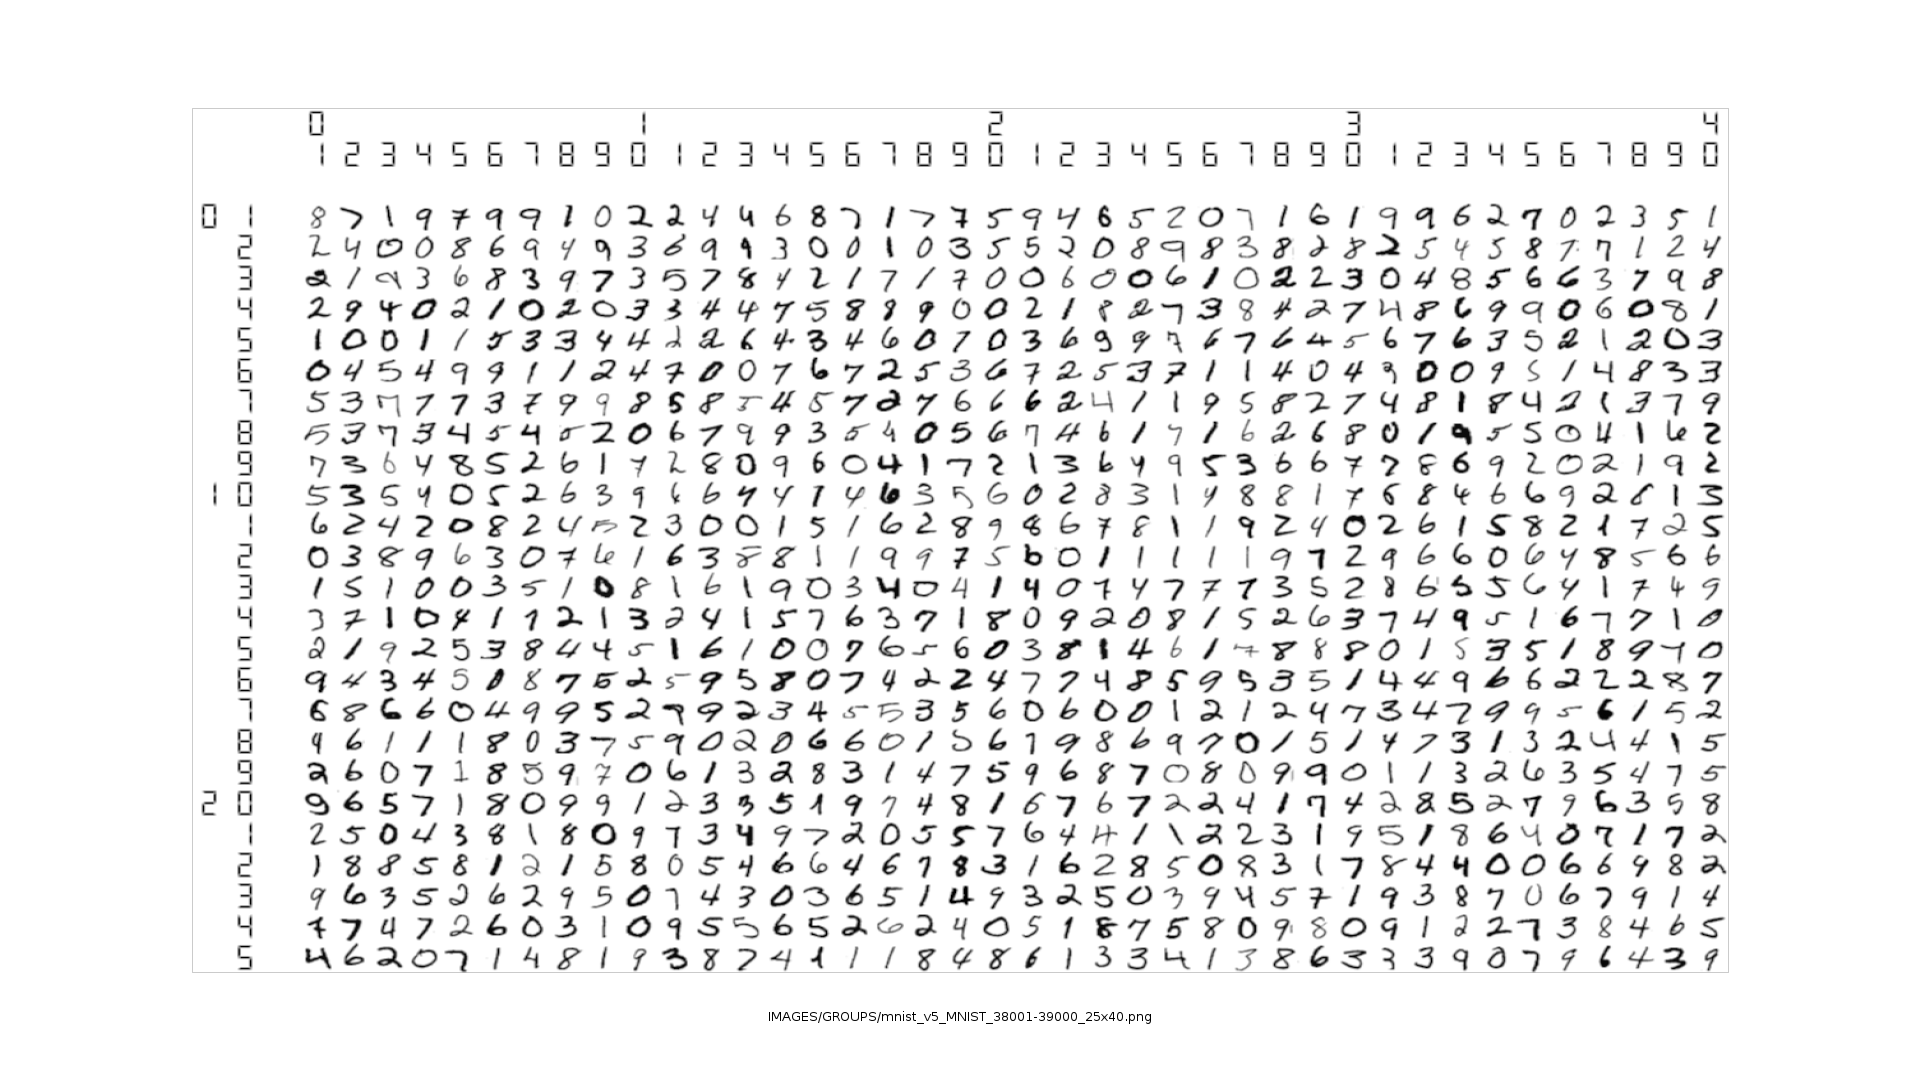 0 1 2 3 4
1 2 3 4 5 6 7 8 9 0 1 2 3 4 5 6 7 8 9 0 1 2 3 4 5 6 7 8 9 0 1 2 3 4 5 6 7 8 9 0
0 1 8 7 1 9 7 9 9 1 0 2 2 4 4 6 8 7 1 7 7 5 9 4 6 5 2 0 7 1 6 1 9 9 6 2 7 0 2 3 5 1
2 2 4 0 0 8 6 9 4 9 3 6 9 9 3 0 0 1 0 3 5 5 2 0 8 9 8 3 8 2 8 2 5 4 5 8 7 7 1 2 4
3 2 1 9 3 6 8 3 9 7 3 5 7 8 4 2 1 7 1 7 0 0 6 0 0 6 1 0 2 2 3 0 4 8 5 6 6 3 7 9 8
4 2 9 4 0 2 1 0 2 0 3 3 4 4 7 5 8 8 9 0 0 2 1 8 2 7 3 8 4 2 7 4 8 6 9 9 0 6 0 8 1
5 1 0 0 1 1 5 3 3 4 4 2 2 6 4 3 4 6 0 7 0 3 6 9 9 7 6 7 6 4 5 6 7 6 3 5 2 1 2 0 3
6 0 4 5 4 9 9 1 1 2 4 7 0 0 7 6 7 2 5 3 6 7 2 5 3 7 1 1 4 0 4 3 0 0 9 5 1 4 8 3 3
7 5 3 7 7 7 3 7 9 9 8 5 8 5 4 5 7 2 7 6 6 6 2 4 1 1 9 5 8 2 7 4 8 1 8 4 2 1 3 7 9
8 5 3 7 3 4 5 4 5 2 0 6 7 9 9 3 5 4 0 5 6 7 4 6 1 7 1 6 2 6 8 0 1 9 5 5 0 4 1 6 2
9 7 3 6 4 8 5 2 6 1 7 2 8 0 9 6 0 4 1 7 2 1 3 6 4 9 5 3 6 6 7 7 8 6 9 2 0 2 1 9 2
1 0 5 3 5 4 0 5 2 6 3 9 6 6 4 4 7 4 6 3 5 6 0 2 8 3 1 4 8 8 1 7 6 8 4 6 6 9 2 8 1 3
1 6 2 4 2 0 8 2 4 5 2 3 0 0 1 5 1 6 2 8 9 8 6 7 8 1 1 9 2 4 0 2 6 1 5 8 2 1 7 2 5
2 0 3 8 9 6 3 0 7 6 1 6 3 8 8 1 1 9 9 7 5 6 0 1 1 1 1 1 9 7 2 9 6 6 0 6 4 8 5 6 6
3 1 5 1 0 0 3 5 1 0 8 1 6 1 9 0 3 4 0 4 1 4 0 7 4 7 7 7 3 5 2 8 6 5 5 6 4 1 7 4 9
4 3 7 1 0 4 1 7 2 1 3 2 4 1 5 7 6 3 7 1 8 0 9 2 0 8 1 5 2 6 3 7 4 9 5 1 6 7 7 1 0
5 2 1 9 2 5 3 8 4 4 5 1 6 1 0 0 7 6 5 6 0 3 8 1 4 6 1 7 8 8 8 0 1 5 3 5 1 8 9 7 0
6 9 4 3 4 5 0 8 7 5 2 5 9 5 8 0 7 4 2 2 4 7 7 4 8 5 9 5 3 5 1 4 4 9 6 6 2 2 2 8 7
7 6 8 6 6 0 4 9 9 5 2 7 9 2 3 4 5 5 3 5 6 0 6 0 0 1 2 1 2 4 7 3 4 7 9 9 5 6 1 5 2
8 4 6 1 1 1 8 0 3 7 5 9 0 2 0 6 6 0 1 5 6 7 9 8 6 9 7 0 1 5 1 4 7 3 1 3 2 4 4 1 5
9 2 6 0 7 1 8 5 9 7 0 6 1 3 2 8 3 1 4 7 5 9 6 8 7 0 8 0 9 9 0 1 1 3 2 6 3 5 4 7 5
2 0 9 6 5 7 1 8 0 9 9 1 2 3 3 5 1 9 7 4 8 1 6 7 6 7 2 2 4 1 7 4 2 8 5 2 7 9 6 3 5 8
1 2 5 0 4 3 8 1 8 0 9 7 3 4 9 7 2 0 5 5 7 6 4 4 1 1 2 2 3 1 9 5 1 8 6 4 0 7 1 7 2
2 1 8 8 5 8 1 2 1 5 8 0 5 4 6 6 4 6 7 8 3 1 6 2 8 5 0 8 3 1 7 8 4 4 0 0 6 6 9 8 2
3 9 6 3 5 2 6 2 9 5 0 7 4 3 0 3 6 5 1 4 9 3 2 5 0 3 9 4 5 7 1 9 3 8 7 0 6 7 9 1 4
4 7 7 4 7 2 6 0 3 1 0 9 5 5 6 5 2 6 2 4 0 5 1 8 7 5 8 0 9 8 0 9 1 2 2 7 3 8 4 6 5
5 4 6 2 0 7 1 4 8 1 9 3 8 7 4 1 1 1 8 4 8 6 1 3 3 4 1 3 8 6 3 3 3 9 0 7 9 6 4 3 9
IMAGES/GROUPS/mnist_v5_MNIST_38001-39000_25x40.png